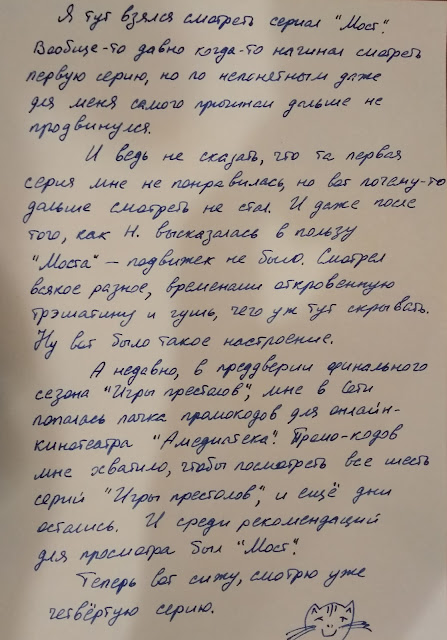 Я тут взялся смотреть сериал "Мост".
Вообще-то давно когда-то начинал смотреть
первую серию, но по непонятным даже
для меня самого причинам дальше не
продвинулся.
И ведь не сказать, что та первая
серия мне не понравилась, но вот почему-то
дальше смотреть не стал. И даже после
того, как Н. высказалась в пользу
"Моста" — подвижек не было. Смотрел
всякое разное, временами откровенную
трэшатину и гушь, чего уж тут скрывать.
Ну вот было такое настроение.
А недавно, в преддверии финального
сезона "Игры престолов", мне в Сети
попалась пачка промокодов для онлайн-
кинотеатра "Амедиатека". Промо-кодов
мне хватило, чтобы посмотреть все шесть
серий "Игры престолов", и ещё дни
остались. И среди рекомендаций
для просмотра был "Мост".
Теперь вот сижу, смотрю уже
четвёртую серию.